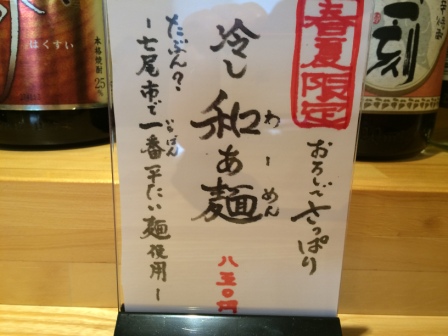 春夏限定
おろしでさっぱり
冷し和あ麺
わーめん
八五〇円
たぶん?
ー七尾市で一番平たい麺使用ー
いちばん
はくすい
本格焼酎
25%
一刻